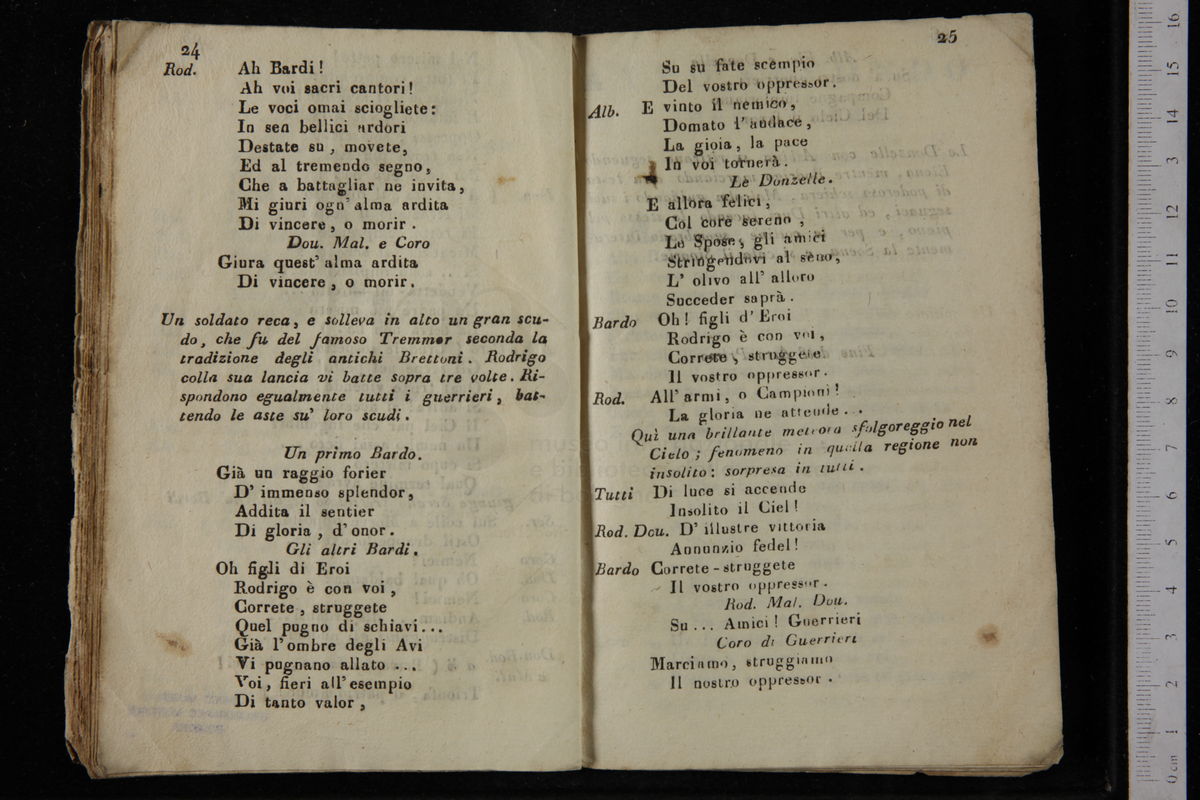 24
Rod. Ah Bardi!
Ah voi sacri cantori!
Le voci omai sciogliete:
In sen bellici ardori
Destate su, movete,
Ed al tremendo segno,
Che a battagliar ne invita,
Mi giuri ogn' alma ardita
Di vincere, o morir.
Dou. Mal. e Coro
Giura quest' alma ardita
Di vincere, o morir.
Un soldato reca, e solleva in alto un gran scu-
do, che fu del famoso Tremmor seconda la
tradizione degli antichi Brettoni. Rodrigo
colla sua lancia vi batte sopra tre volte. Ri-
spondono egualmente tutti i guerrieri, bat-
tendo le aste su' loro scudi.
Un primo Bardo.
Già un raggio forier
D' immenso splendor,
Addita il sentier
Di gloria, d' onor.
Gli altri Bardi.
Oh figli di Eroi
Rodrigo è con voi,
Correte, struggete
Quel pugno di schiavi...
Già l'ombre degli Avi
Vi pugnano allato ...
Voi, fieri all' esempio
Di tanto valor,
25
Su su fate scempio
Del vostro oppressor.
Alb. E vinto il nemico,
Domato l' audace,
La gioia, la pace
In voi tornerà.
Le Donzelle.
E allora felici,
Col core sereno,
Le Spose, gli amici
Stringendovi al seno,
L' olivo all' alloro
Succeder saprà.
Bardo Oh! figli d' Eroi
Rodrigo è con voi,
Correte, struggete
Il vostro oppressor.
Rod. All' armi, o Campioni!
La gloria ne attende...
Quì una brillante meteora sfolgoreggio nel
Cielo; fenomeno in quella regione non
insolito: sorpresa in tutti.
Tutti Di luce si accende
Insolito il Ciel!
Rod. Dou. D' illustre vittoria
Annunzio fedel!
Bardo Correte - struggete
Il vostro oppressor.
Rod. Mal. Dou.
Su... Amici! Guerrieri
Coro di Guerrieri
Marciamo, struggiamo
Il nostro oppressor.